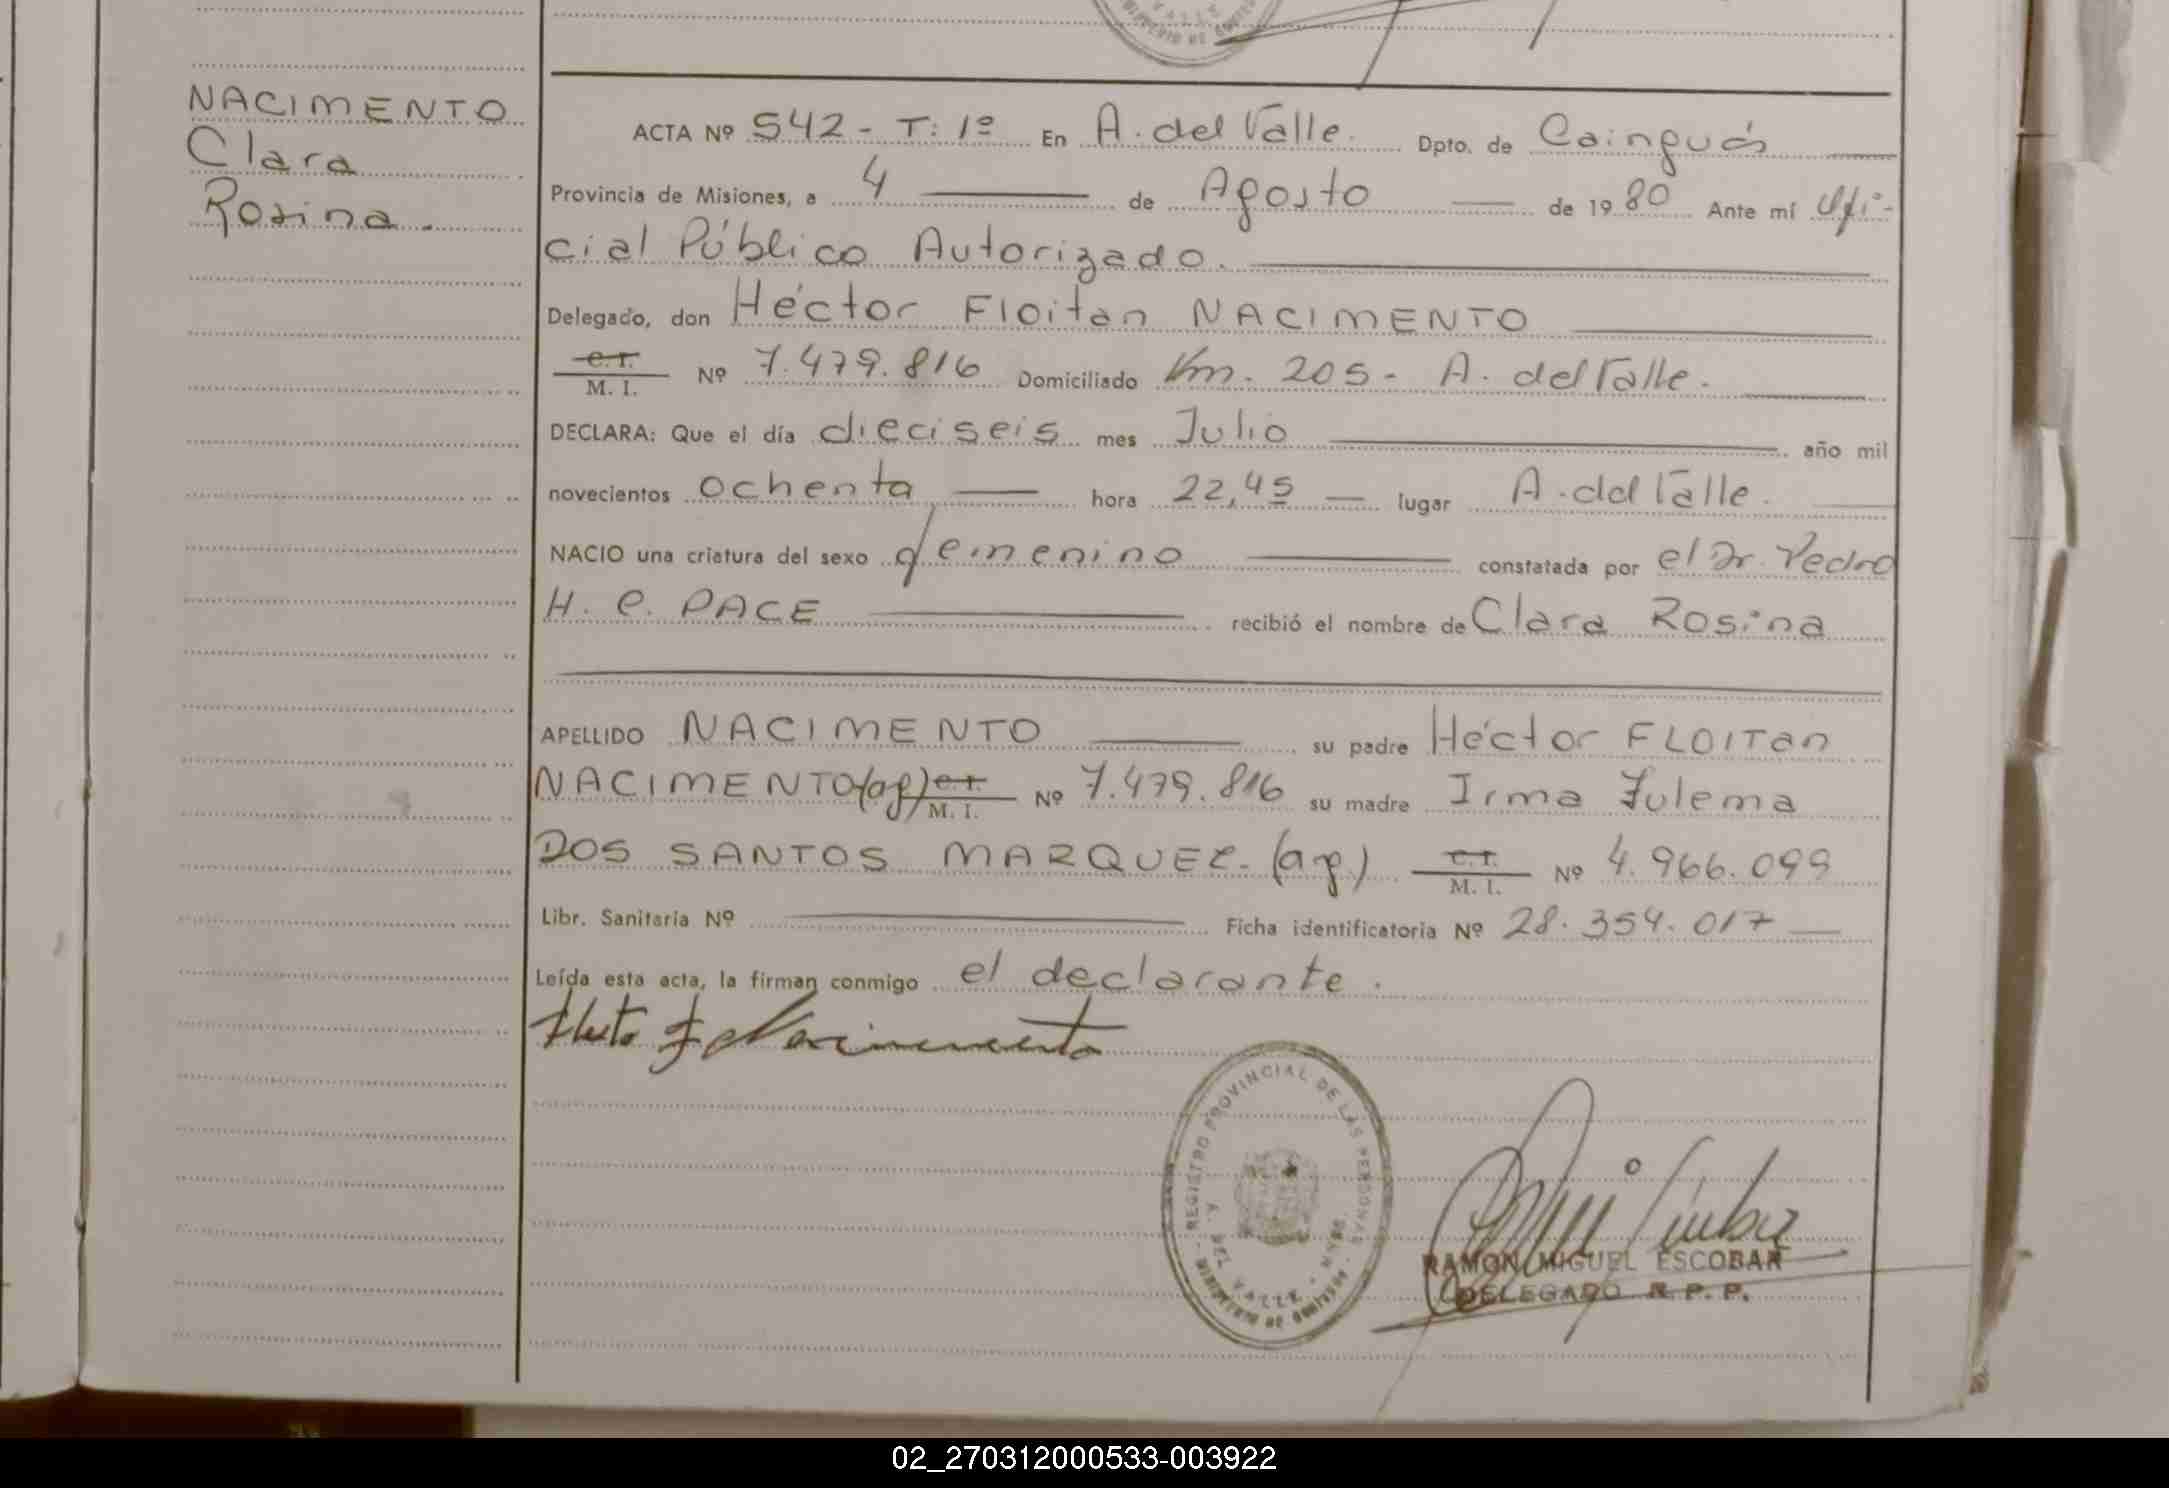 NACIMENTO
Clara
Rosina.
ACTA Nº 542 - T: 1º En A. del Valle. Dpto. de Cainguás
Provincia de Misiones, a 4 de Agosto de 1980 Ante mí Ofi-
cial Público Autorizado.
Delegado, don Héctor Floitan NACIMENTO
C. I.
M. I. Nº 7.479.816 Domiciliado Km. 205 - A. del Valle.
DECLARA: Que el día dieciseis mes Julio año mil
novecientos ochenta hora 22,45 lugar A. del Valle.
NACIO una criatura del sexo femenino constatada por el Dr. Pedro
H. C. PACE recibió el nombre de Clara Rosina
APELLIDO NACIMENTO su padre Héctor FLOITAN
NACIMENTO (ag) C. I. M. I. Nº 7.479.816 su madre Irma Zulema
DOS SANTOS MARQUEZ - (ag) C. I. M. I. Nº 4.966.099
Libr. Sanitaria Nº Ficha identificatoria Nº 28.354.017
Leída esta acta, la firman conmigo el declarante.
REGISTRO PROVINCIAL DE LAS PERSONAS
A. DEL VALLE - MNES.
MINISTERIO DE GOBIERNO
RAMON MIGUEL ESCOBAR
DELEGADO R. P. P.
02_270312000533-003922